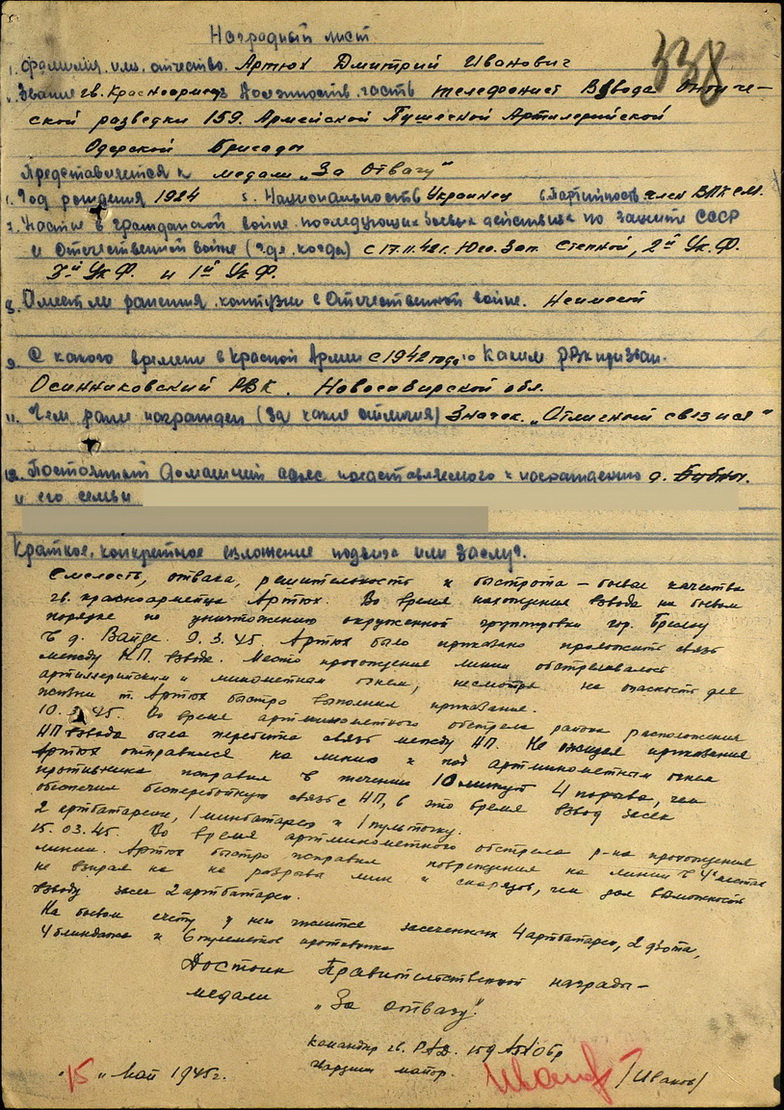 Наградный лист
338
1. Фамилия, имя, отчество. Артюх Дмитрий Иванович
Звание гв. Красноармеец Должность, часть телефонист Взвода Оптиче-
ской разведки 159. Армейской Пушечной Артилерийской
Одерской Бригады
Представляется к медали „За Отвагу"
Год рождения 1924 5. Национальность Украинец 6. Партийность член ВЛКСМ.
7. Участие в гражданской войне, последующих боевых действиях по защите СССР
и Отечественной войне (где, когда) с 17.11.42 г. Юго. Зап. Степной, 2й Ук. Ф.
3й Ук. Ф. и 1й Ук. Ф.
8. Имеет ли ранения, контузии в Отечественной войне. Не имеет
9. С какого времени в Красной Армии с 1942 года 10 Каким РВК призван.
Осинниковский РВК. Новосибирской обл.
11. Чем ранее награжден (за какие отличия) Значек. „Отличный связист"
12. Постоянный Домашний адрес представляемого к награждению д.
и его семьи
Краткое, конкретное изложение подвига или заслуг.
Смелость, отвага, решительность и быстрота – боевые качества
гв. красноармейца Артюх. Во время нахождения взвода на боевом
порядке по уничтожению окруженной группировки гор. Бреслау
в д. 9.3.45. Артюх было приказано проложить связь
между НП. взвода. Место прохождения линии обстреливалось
артиллерийским и минометным огнем, несмотря на опасность для
жизни т. Артюх быстро выполнил приказание.
10.3.45. Во время артминометного обстрела района расположения
НП взвода была перебита связь между НП. Не ожидая приказания
Артюх отправился на линию и под артминометным огнем
противника исправил в течении 10 минут 4 порыва, чем
обеспечил бесперебойную связь с НП, в это время взвод засек
2 артбатареи, 1 минбатарею и 1 пульточку.
15.03.45. Во время артминометного обстрела р-на прохождения
линии. Артюх быстро исправил повреждения на линии в 4х местах
не взирая на разрывы мин и снарядов, чем дал возможность
взводу засеч 2 артбатареи.
На боевом счету у него имеется засеченных 4 артбатареи, 2 дзота,
4 блиндажа и 6 пулеметов противника
Достоин Правительственной награды –
медали „За отвагу".
Командир гв. РАД. 159 АПАОбр
гвардии майор. Иванов /Иванов/
„15" май 1945 г.